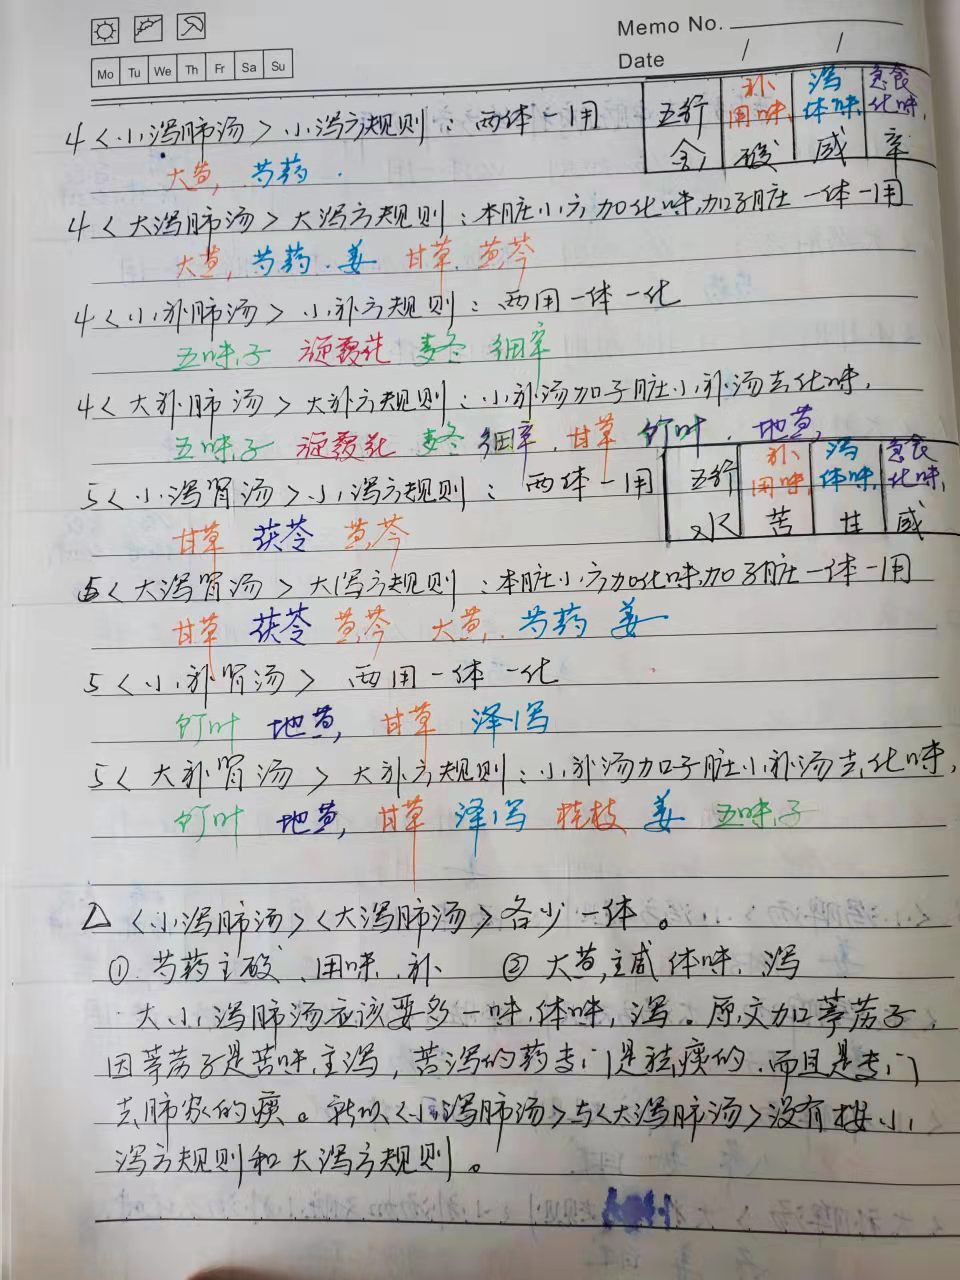 Memo No.
Date / /
Mo Tu We Th Fr Sa Su
五行 补用味 泻体味 急食化味
金 酸 咸 辛
4<小泻肺汤>小泻方规则:两体一用
大黄 芍药
4<大泻肺汤>大泻方规则:本脏小方加化味,加子脏一体一用
大黄 芍药 姜 甘草 黄芩
4<小补肺汤>小补方规则:两用一体一化
五味子 旋覆花 麦冬 细辛
4<大补肺汤>大补方规则:小补汤加子脏小补汤去化味
五味子 旋覆花 麦冬 细辛 甘草 竹叶 地黄
五行 补用味 泻体味 急食化味
水 苦 甘 咸
5<小泻肾汤>小泻方规则:两体一用
甘草 茯苓 黄芩
5<大泻肾汤>大泻方规则:本脏小方加化味,加子脏一体一用
甘草 茯苓 黄芩 大黄 芍药 姜
5<小补肾汤> 两用一体一化
竹叶 地黄 甘草 泽泻
5<大补肾汤>大补方规则:小补汤加子脏小补汤去化味
竹叶 地黄 甘草 泽泻 桂枝 姜 五味子
△<小泻肺汤><大泻肺汤>各少一体。
① 芍药主酸、用味、补 ② 大黄主咸 体味、泻
大小泻肺汤应该要多一味,体味,泻。原文加葶苈子,
因葶苈子是苦味主泻,苦泻的药专门是祛痰的,而且是专门
去肺家的痰。所以<小泻肺汤>与<大泻肺汤>没有按小
泻方规则和大泻方规则。